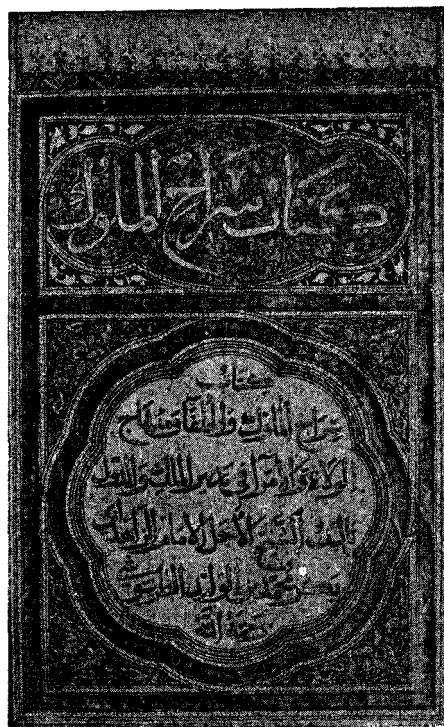 كتاب سراج الملوك
كتاب
سراج الملوك والخلفا ومنهاج
الولاة والامرا في تدبير الملك
تاليف الشيخ الاجل الامام الزاهد ابي
بكر محمد بن الوليد الطرطوشي
رحمه الله